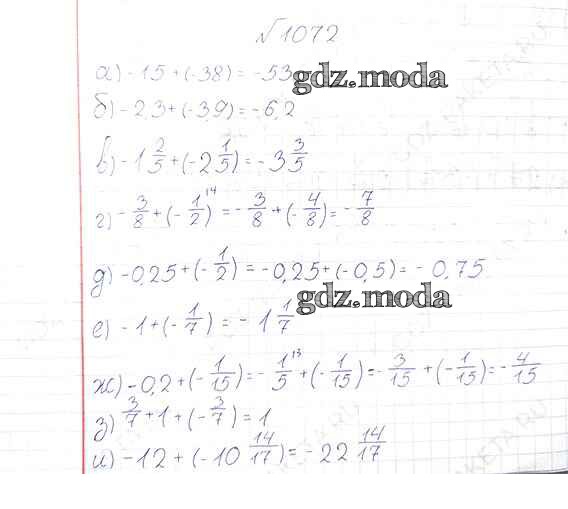 №1072
а) -15 + (-38) = -53
gdz.moda
б) -2,3 + (-3,9) = -6,2
в) -1 2/5 + (-2 1/5) = -3 3/5
г) -3/8 + (-1/2)^14 = -3/8 + (-4/8) = -7/8
д) -0,25 + (-1/2) = -0,25 + (-0,5) = -0,75
gdz.moda
е) -1 + (-1/7) = -1 1/7
ж) -0,2 + (-1/15) = -1/5^13 + (-1/15) = -3/15 + (-1/15) = -4/15
з) 3/7 + 1 + (-3/7) = 1
и) -12 + (-10 14/17) = -22 14/17